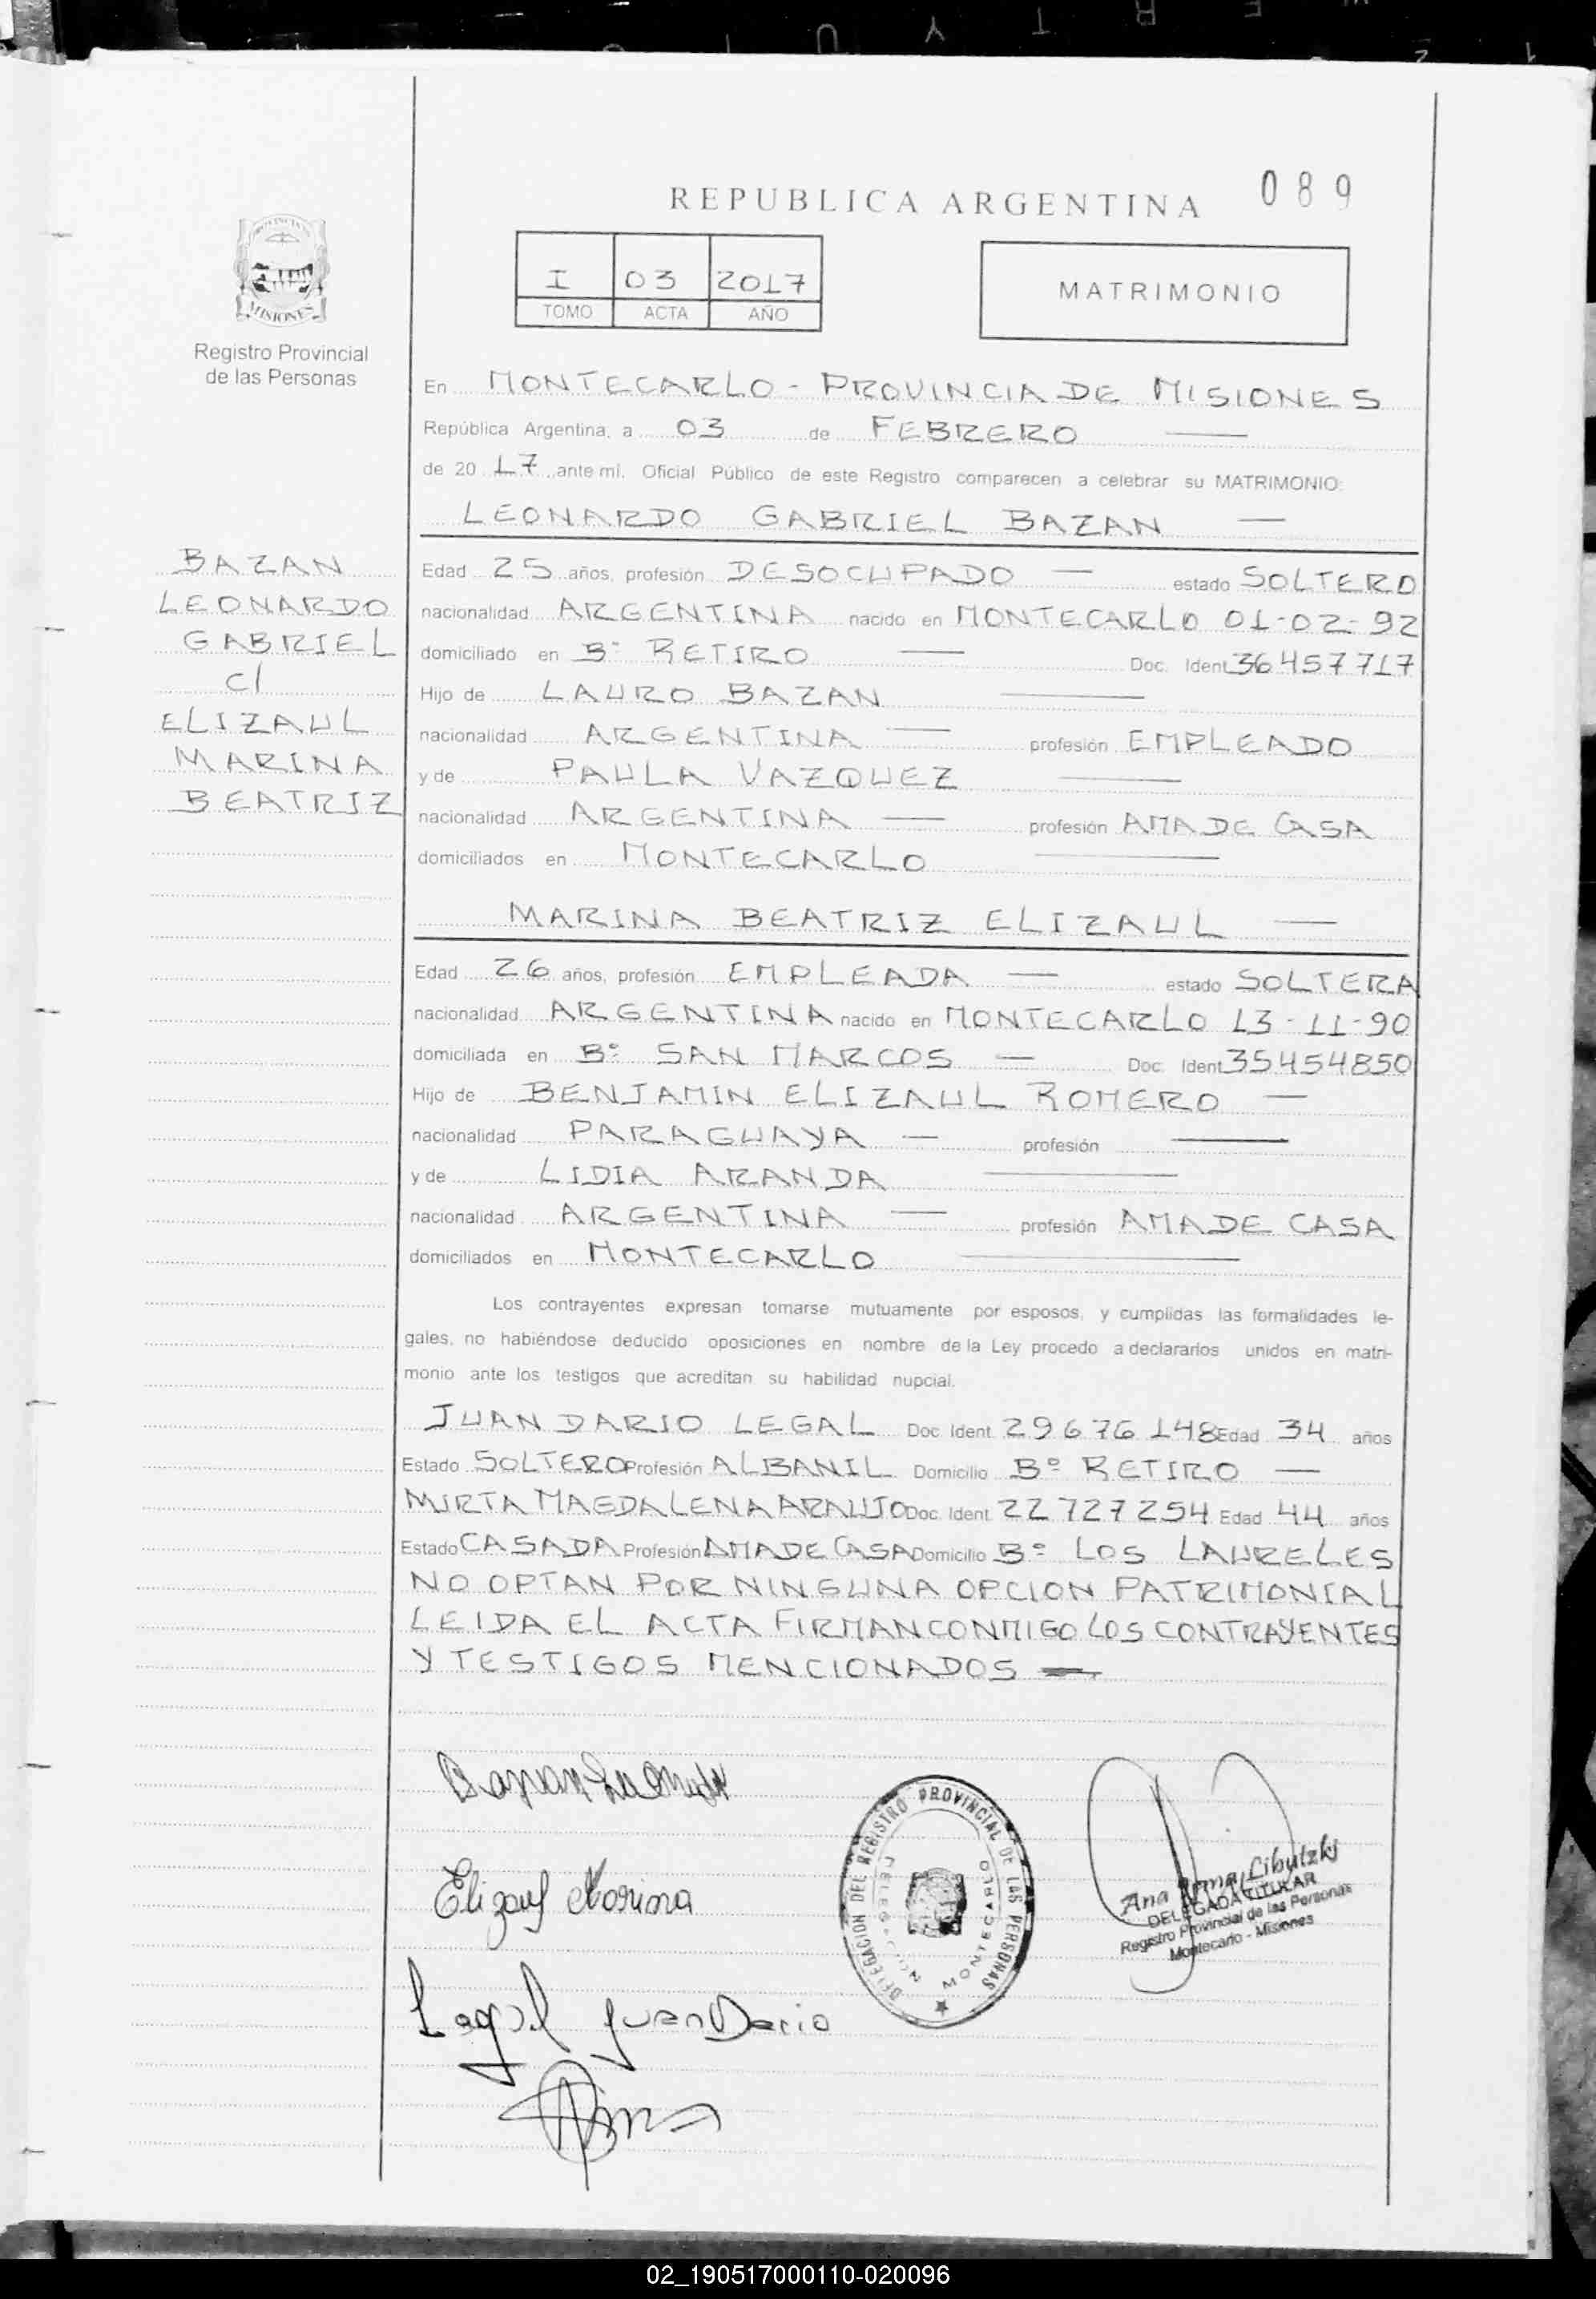 REPUBLICA ARGENTINA
089
PROVINCIA
MISIONES
Registro Provincial
de las Personas
I 03 2017
TOMO ACTA AÑO
MATRIMONIO
En MONTECARLO - PROVINCIA DE MISIONES
República Argentina, a 03 de FEBRERO —
de 20 17 ante mí, Oficial Público de este Registro comparecen a celebrar su MATRIMONIO:
LEONARDO GABRIEL BAZAN —
BAZAN
LEONARDO
GABRIEL
C/
ELIZAUL
MARINA
BEATRIZ
Edad 25 años, profesión DESOCUPADO — estado SOLTERO
nacionalidad ARGENTINA nacido en MONTECARLO 01-02-92
domiciliado en Bº RETIRO — Doc. Ident. 36457717
Hijo de LAURO BAZAN —
nacionalidad ARGENTINA — profesión EMPLEADO
y de PAULA VAZQUEZ —
nacionalidad ARGENTINA — profesión AMA DE CASA
domiciliados en MONTECARLO —
MARINA BEATRIZ ELIZAUL —
Edad 26 años, profesión EMPLEADA — estado SOLTERA
nacionalidad ARGENTINA nacido en MONTECARLO 13-11-90
domiciliada en Bº SAN MARCOS — Doc. Ident. 35454850
Hijo de BENJAMIN ELIZAUL ROMERO —
nacionalidad PARAGUAYA — profesión —
y de LIDIA ARANDA —
nacionalidad ARGENTINA — profesión AMA DE CASA
domiciliados en MONTECARLO —
Los contrayentes expresan tomarse mutuamente por esposos, y cumplidas las formalidades le-
gales, no habiéndose deducido oposiciones en nombre de la Ley procedo a declararlos unidos en matri-
monio ante los testigos que acreditan su habilidad nupcial.
JUAN DARIO LEGAL Doc. Ident. 29676148 Edad 34 años
Estado SOLTERO Profesión ALBANIL Domicilio Bº RETIRO —
MIRTA MAGDALENA ARAUJO Doc. Ident. 22727254 Edad 44 años
Estado CASADA Profesión AMA DE CASA Domicilio Bº LOS LAURELES
NO OPTAN POR NINGUNA OPCION PATRIMONIAL
LEIDA EL ACTA FIRMAN CONMIGO LOS CONTRAYENTES
Y TESTIGOS MENCIONADOS —
Bazan Leonardo
Elizaul Marina
Legal Juan Dario
DELEGACION DEL REGISTRO PROVINCIAL DE LAS PERSONAS
DELEGACION MONTECARLO
Ana Irma Libutzki
DELEGADA TITULAR
Registro Provincial de las Personas
Montecarlo - Misiones
02_190517000110-020096